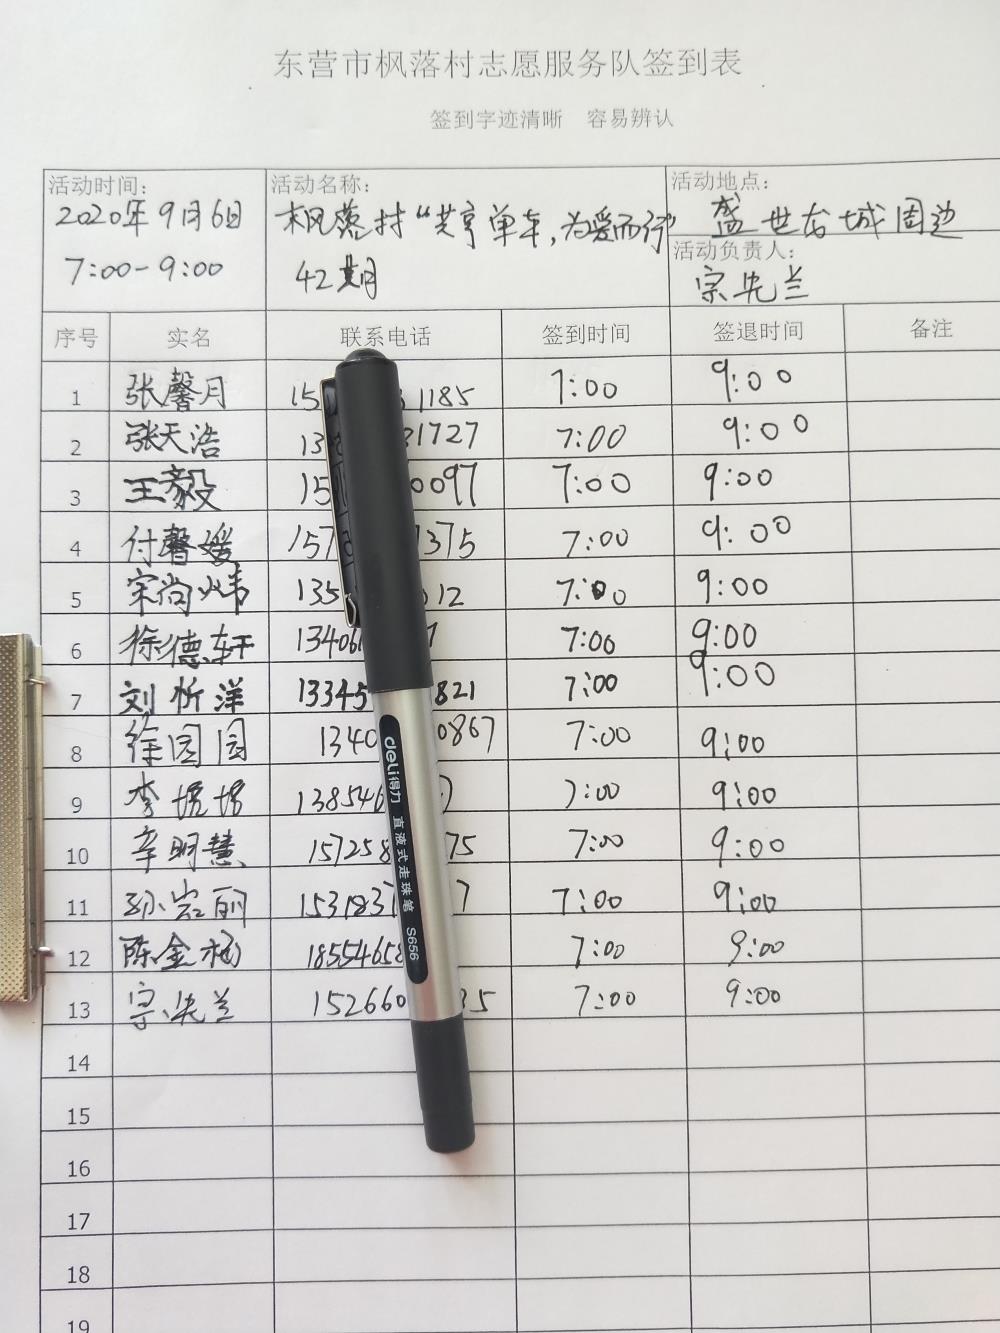 东营市枫落村志愿服务队签到表
签到字迹清晰 容易辨认
活动时间: 活动名称: 活动地点:
2020年9月6日 枫落村“共享单车,为爱而行” 盛世龙城周边
7:00-9:00 42期 活动负责人:
宗先兰
序号 实名 联系电话 签到时间 签退时间 备注
1 张馨月 15 1185 7:00 9:00
2 张天浩 13 1727 7:00 9:00
3 王毅 15 0097 7:00 9:00
4 付馨媛 157 1375 7:00 9:00
5 宋尚炜 135 012 7:00 9:00
6 徐德轩 13406 7:00 9:00
7 刘忻洋 13345 821 7:00 9:00
8 徐园园 1340 0867 7:00 9:00
9 李 138546 7:00 9:00
10 辛明慧 157258 75 7:00 9:00
11 孙岩丽 153183 7 7:00 9:00
12 陈金 18554658 7:00 9:00
13 宗先兰 152660 35 7:00 9:00
14
15
16
17
18
19
deli得力 直液式走珠笔 S656